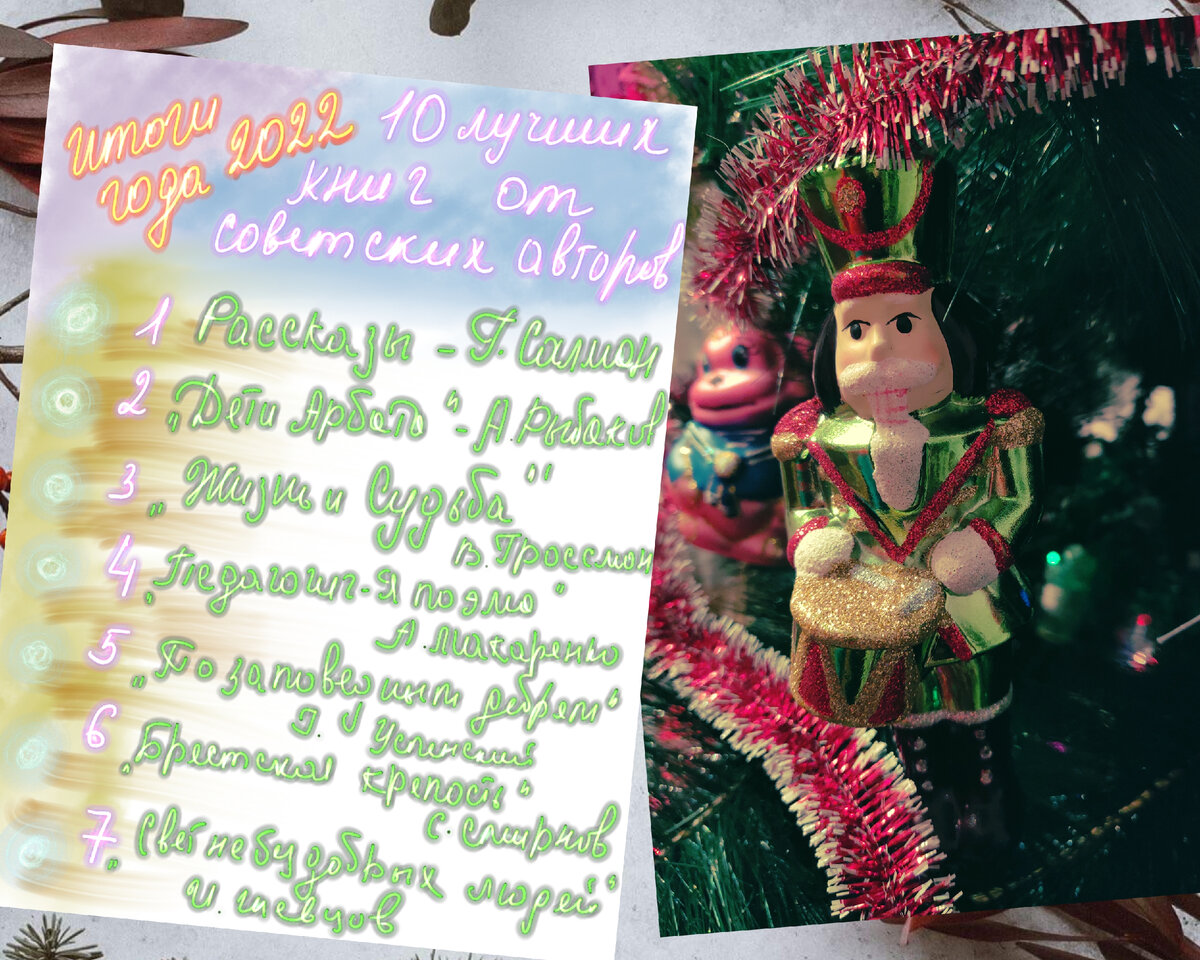 итоги 2022 10 лучших
года книг от
советских авторов
1 Рассказы - Г. Салман
2 „Дети Арбата" - А. Рыбаков
3 „Жизнь и Судьба"
В. Гроссман
4 „Педагогич-я поэма"
А. Макаренко
5 „По заповедным дебрям"
Успенский
6 „Брестская крепость"
С. Смирнов
7 „Свет не без добрых людей"
И. Шевцов